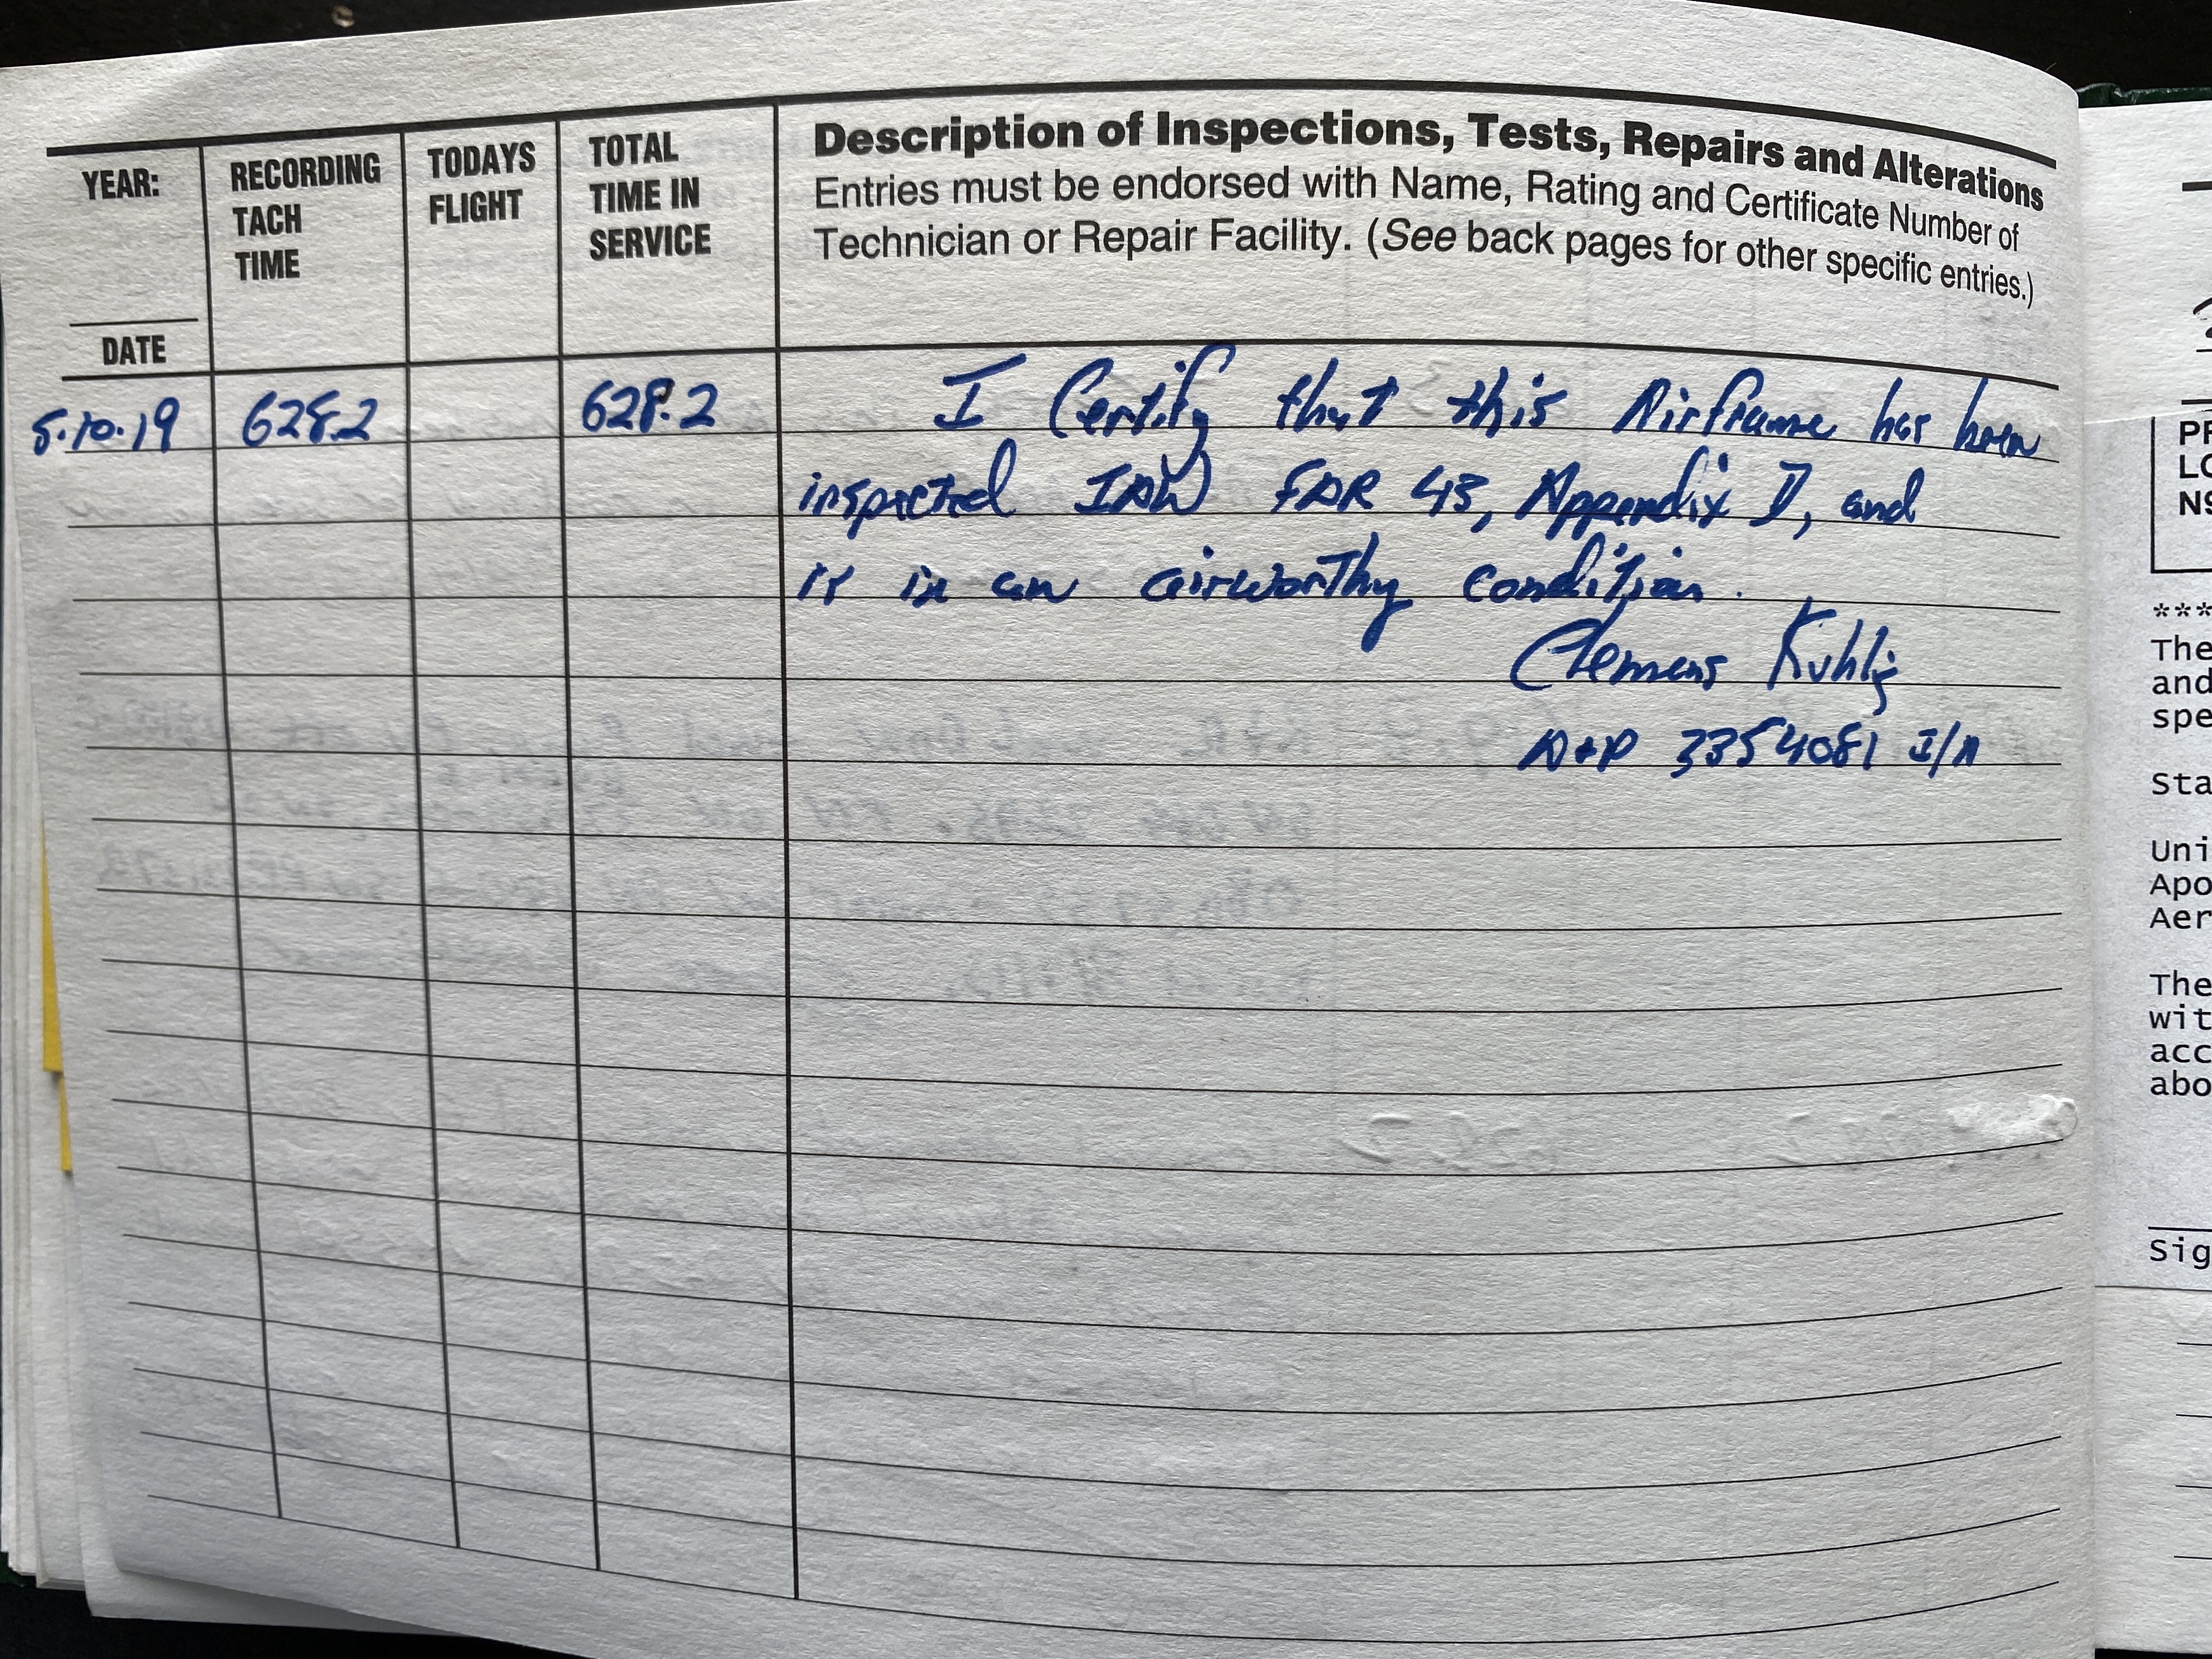 YEAR:
DATE
RECORDING
TACH
TIME
TODAYS
FLIGHT
TOTAL
TIME IN
SERVICE
Description of Inspections, Tests, Repairs and Alterations
Entries must be endorsed with Name, Rating and Certificate Number of
Technician or Repair Facility. (See back pages for other specific entries.)
5.10.19 628.2 628.2 I Certify that this Airframe has been
inspected IAW FAR 43, Appendix D, and
is in an airworthy condition.
Clemens Kuhlig
A+P 3354081 I/A
PR
LO
NS
***
The
and
spe
Sta
Uni
Apo
Aer
The
wit
acc
abo
Sig